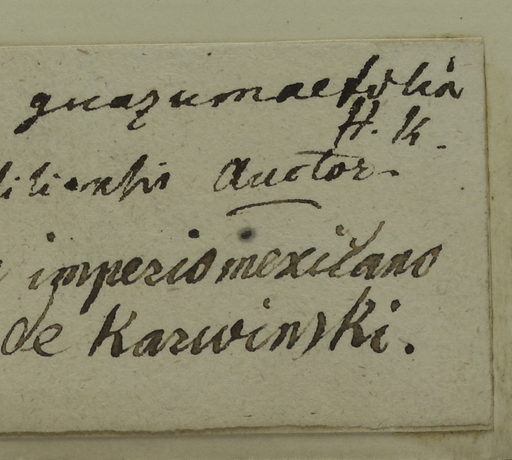 guazumaefolia
H. K.
Auctor.
imperio mexicano
de Karwinski.